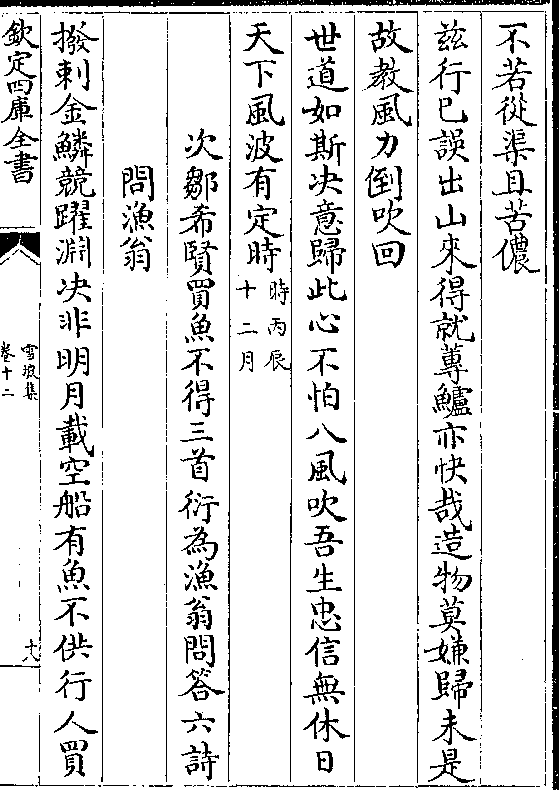 不若從渠且苦儂
兹行已誤出山來得就蓴鱸亦快哉造物莫嫌歸未是
故教風力倒吹回
世道如斯决意歸此心不怕八風吹吾生忠信無休日
天下風波有定時時丙辰十二月
次鄒希賢買魚不得三首衍為漁翁問答六詩
問漁翁
撥剌金鱗競躍淵决非明月載空船有魚不供行人買
欽定四庫全書
雪坡集
卷十二
十八